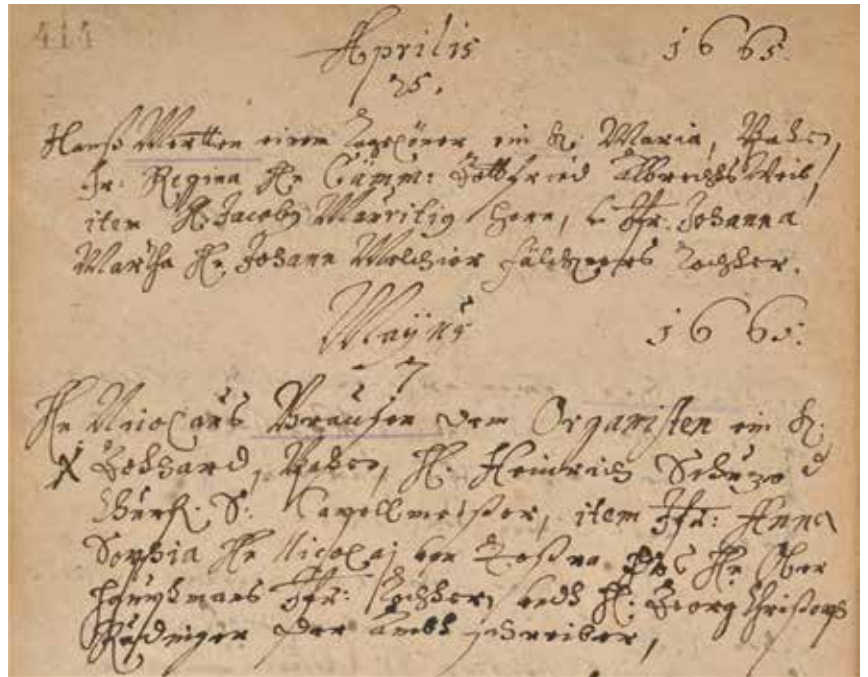 414
Aprilis 1665.
25.
Hanß Mertten einem Tagelöner ein K. Maria, Pathen,
Fr: Regina Hr Cämm: Gottfried Albrechts Weib,
item H. Jacobg Mauritig Horn, Jfr. Johanna
Martha Hr. Johann Melchior Tochter.
Majus 1665.
7
Hr Nicolaus Brausen dem Organisten ein K.
Gebhard, Pathen, H. Heinrich Schütze d
Churf. S. Capellmeister, item Jfr: Anna
Sophia Hr Nicolaj von Hr Ober
Jfr: Tochter, undt H. Georg Christoph
Rüdinger der Ambt schreiber,